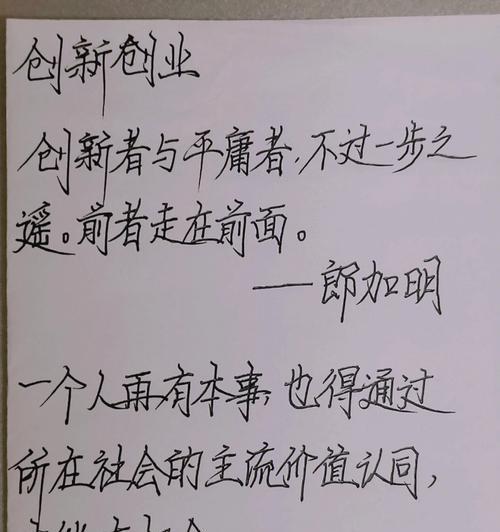 创新创业
创新者与平庸者,不过一步之
遥。前者走在前面。
——郎加明
一个人再有本事,也得通过
所在社会的主流价值认同,